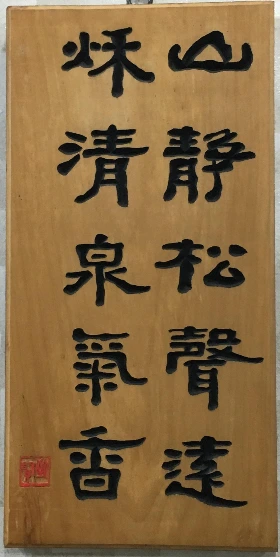 山靜松聲遠
秌清泉氣香